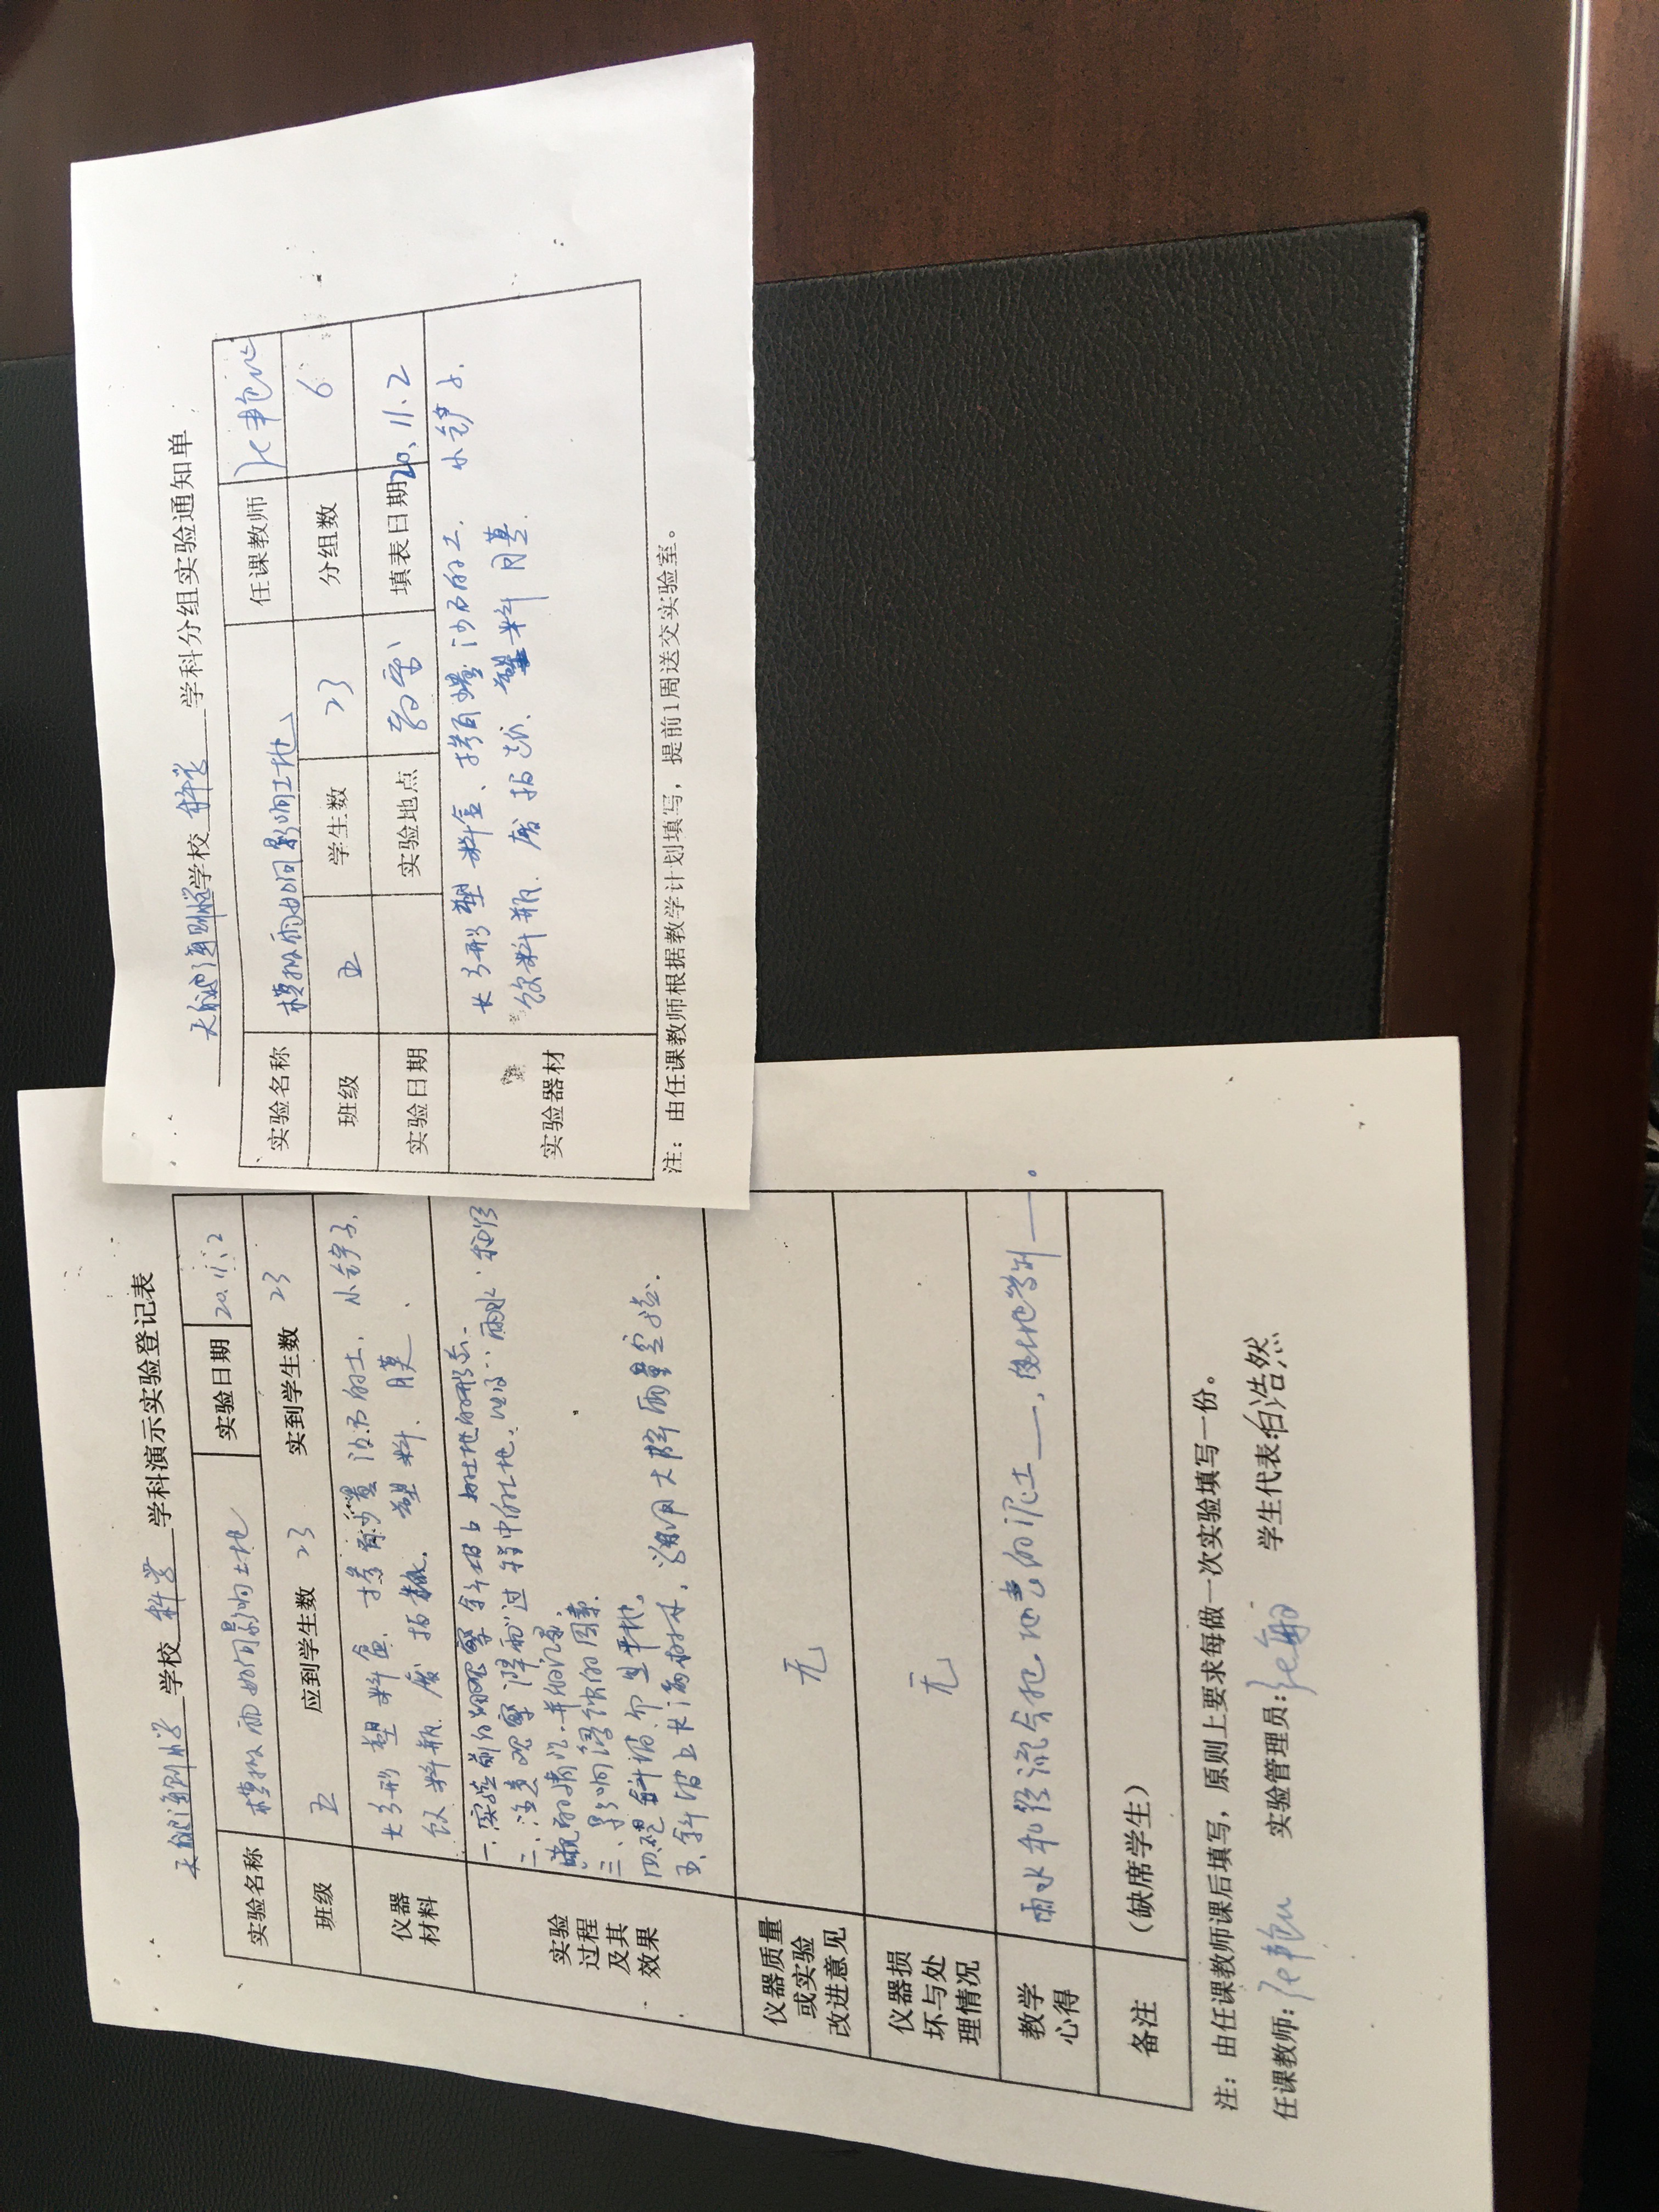 学校 科学 学科分组实验通知单
实验名称 模拟雨如何影响土地 任课教师
班级 五 学生数 23 分组数 6
实验日期 实验地点 教室 填表日期 20.11.2
实验器材 长方形塑料盒、掺有 沙石的土. 小铲子.
饮料瓶. 废报纸. 塑料 膜.
注：由任课教师根据教学计划填写，提前1周送交实验室。
学校 科学 学科演示实验登记表
实验名称 模拟雨如何影响土地 实验日期 20.11.2
班级 五 应到学生数 23 实到学生数 23
仪器材料 长方形塑料盒. 掺有 沙石的土. 小铲子.
饮料瓶. 废报纸. 塑料 膜.
实验过程及其效果 一.实验前 观察斜坡上 土地的形态.
二、注意观察"降雨"过程中的土地. 雨水
的情况.并做记录.
三、影响侵蚀的因素.
四.把斜坡 平地.
五.斜坡上长满树木. 用大降雨量实验.
仪器质量或实验改进意见 无
仪器损坏与处理情况 无
教学心得 雨水和径流会把地表的泥土
备注 （缺席学生）
注：由任课教师课后填写，原则上要求每做一次实验填写一份。
任课教师: 实验管理员: 学生代表:白浩然